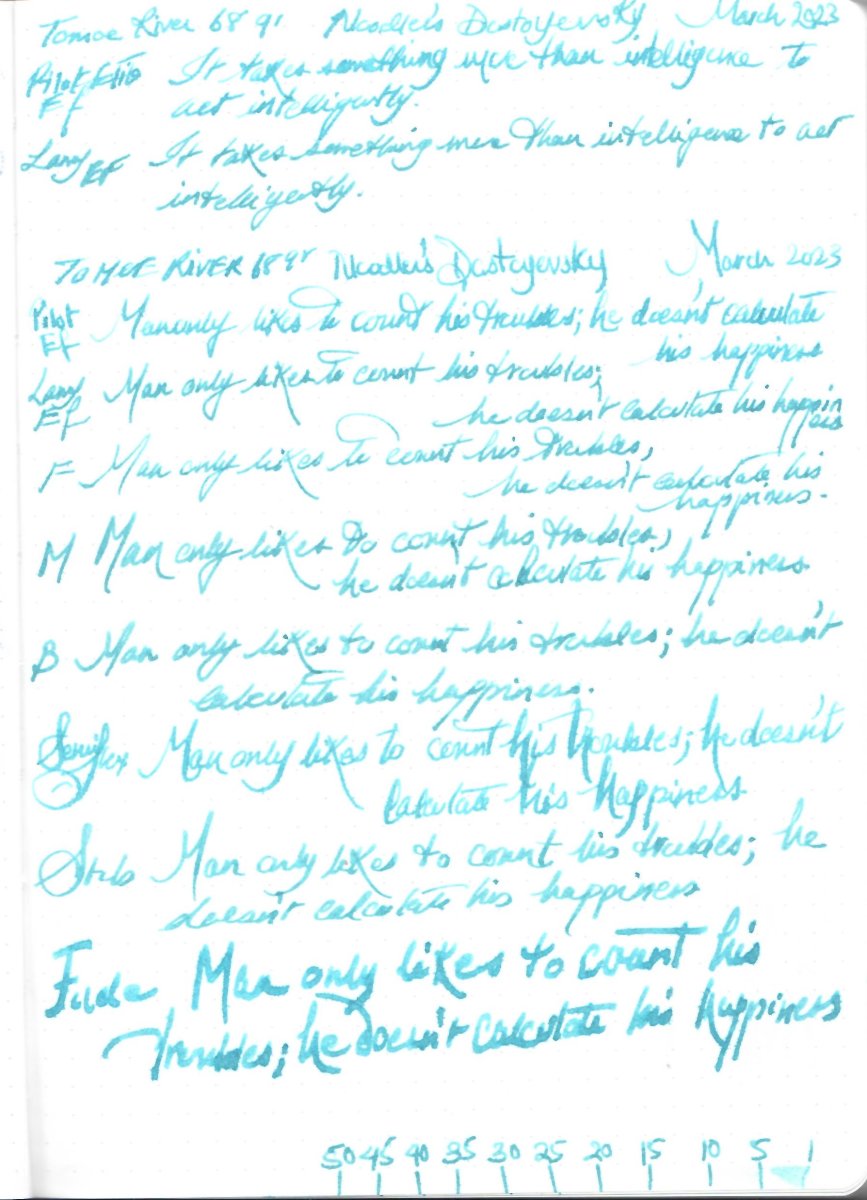 Tomoe River 68 gr Noodler's Dostoyevsky March 2023
Pilot Elite It takes something more than intelligence to
Ef act intelligently.
Lamy EF It takes something more than intelligence to act
intelligently.
TOMOE RIVER 68 gr Noodler's Dostoyevsky March 2023
Pilot Man only likes to count his troubles; he doesn't calculate
Ef his happiness
Lamy Man only likes to count his troubles;
Ef he doesn't calculate his happin
ess
F Man only likes to count his troubles,
he doesn't calculate his
happiness.
M Man only likes to count his troubles,
he doesn't calculate his happiness
B Man only likes to count his troubles; he doesn't
calculate his happiness.
Semiflex Man only likes to count his troubles; he doesn't
calculate his happiness
Stub Man only likes to count his troubles; he
doesn't calculate his happiness
Fude Man only likes to count his
troubles; he doesn't calculate his happiness
50 45 40 35 30 25 20 15 10 5 1